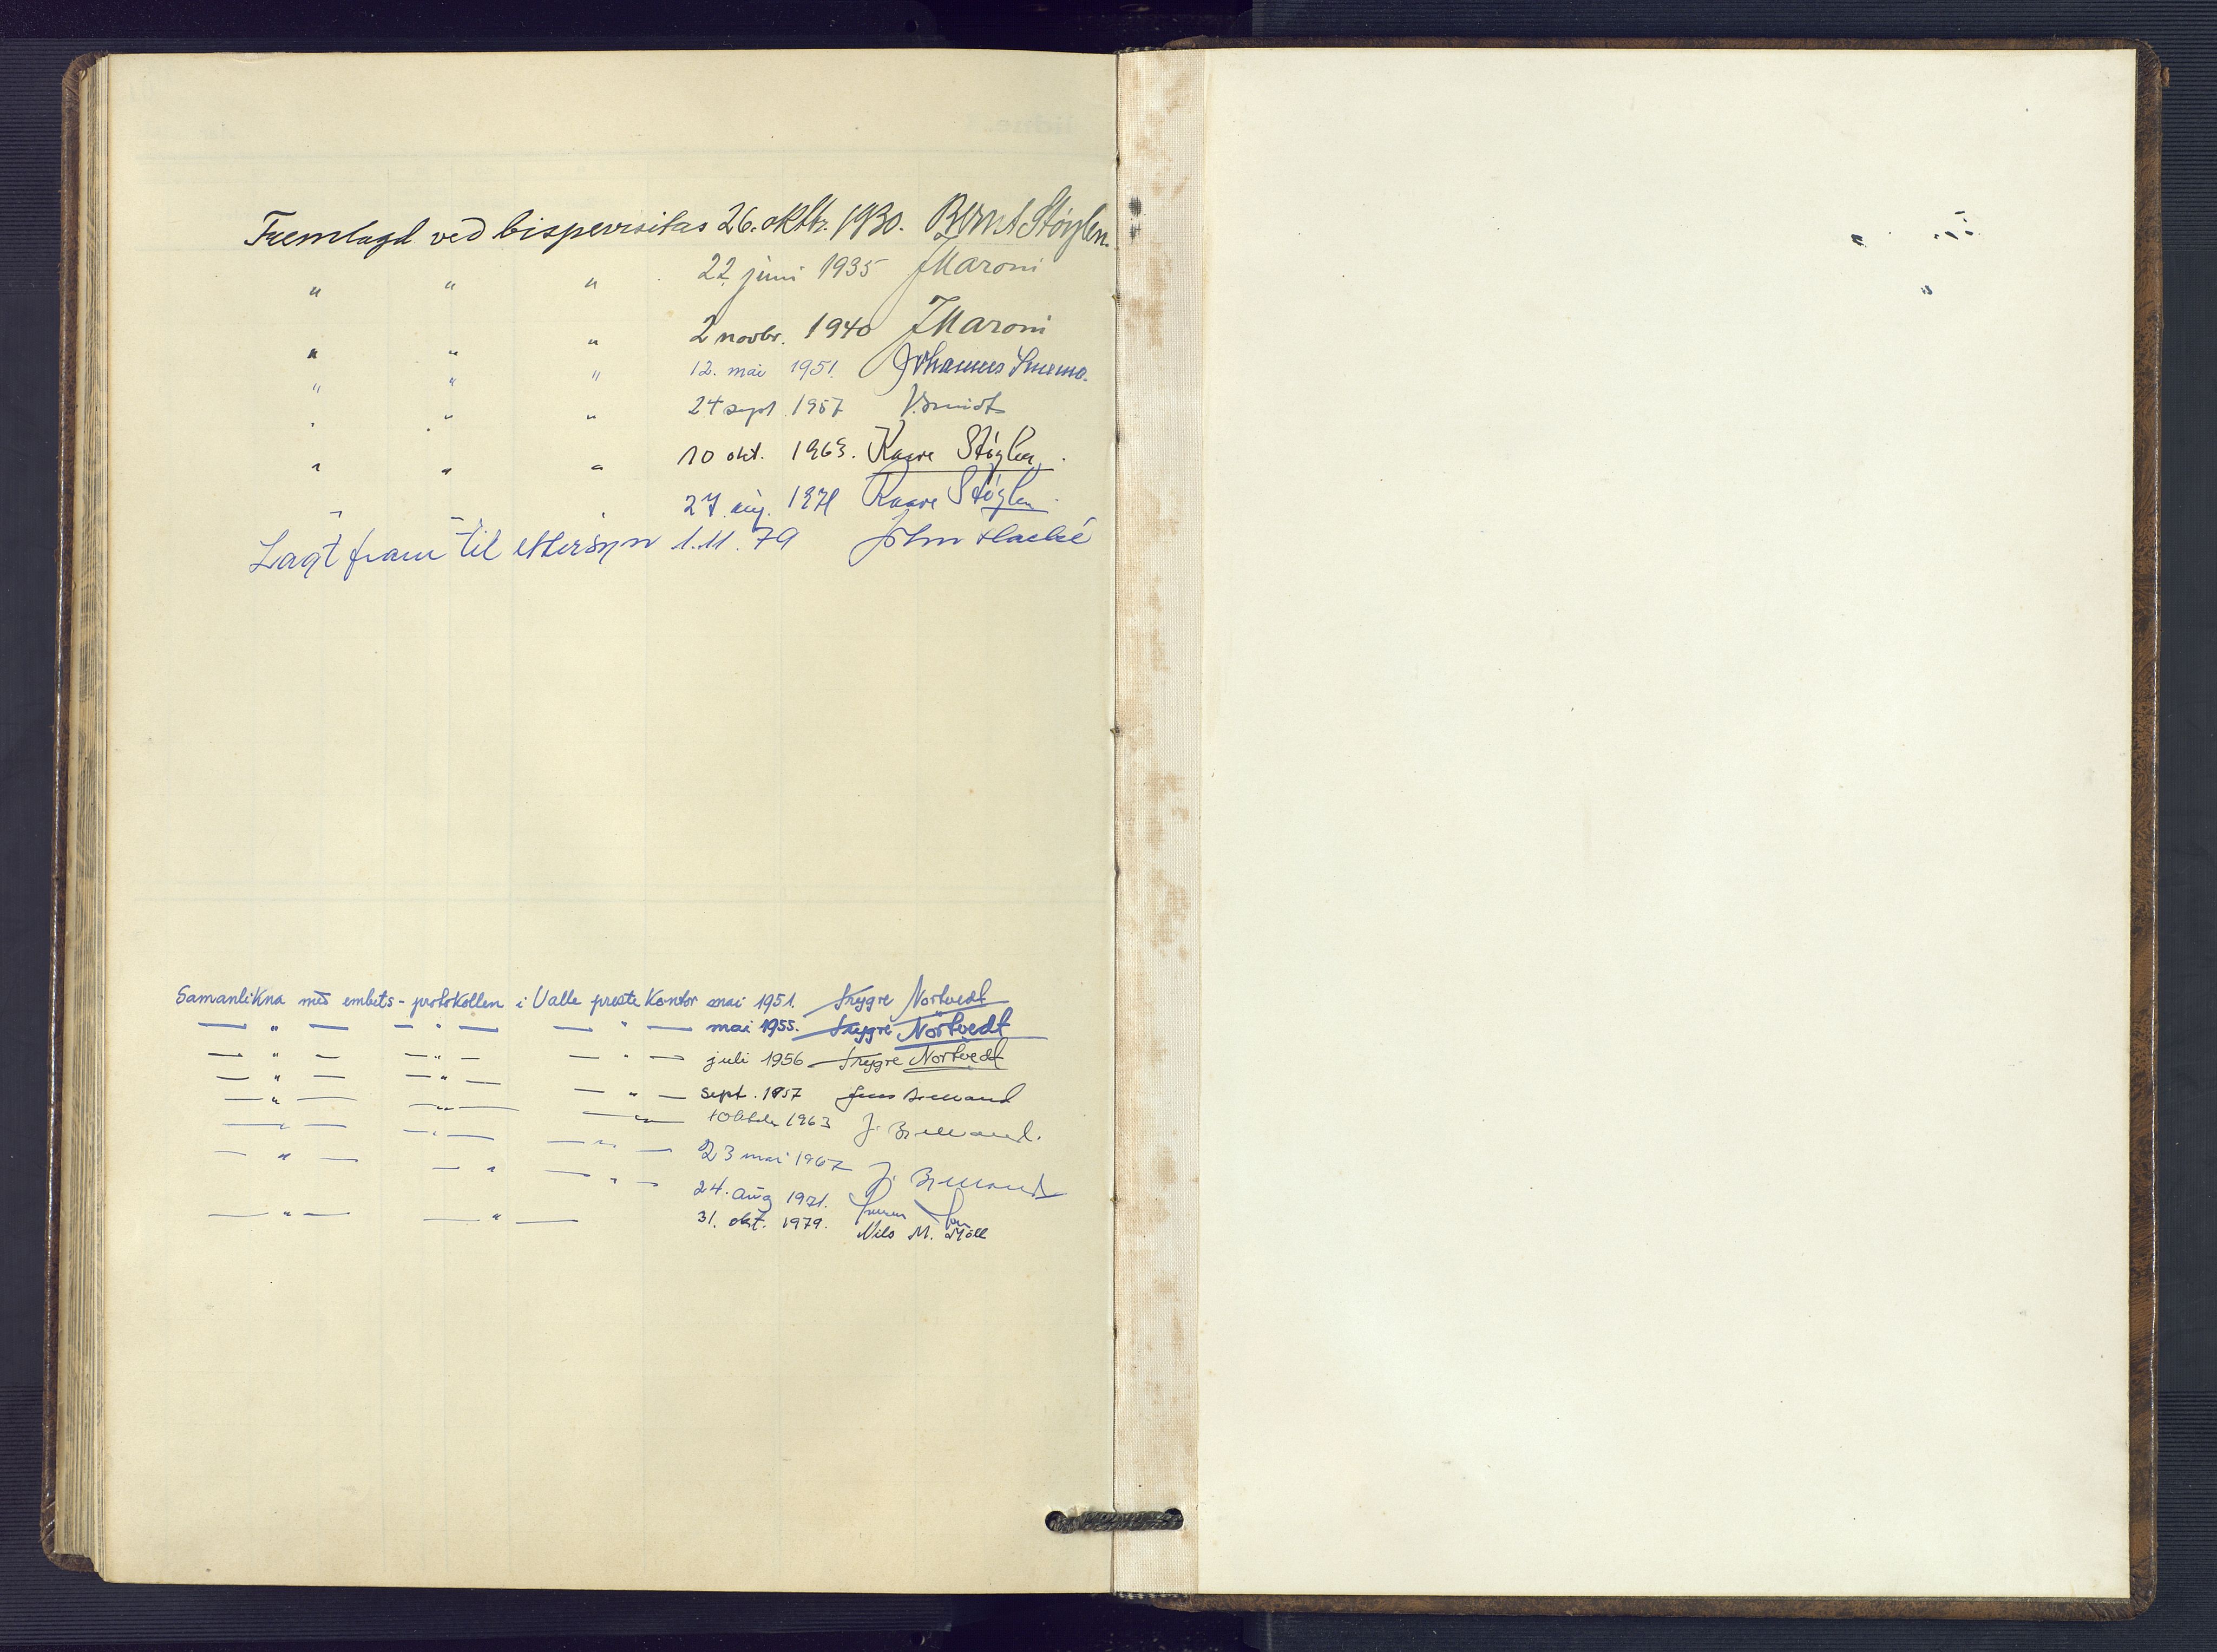 Fremlagd ved bispevisitas 26. oktbr. 1930. Bernt Støylen.
" " " 22. juni 1935 JMaroni
" " " 2 novbr. 1940 JMaroni
" " " 12. mai 1951. Johannes Smemo.
" " " 24 sept. 1957 J. Smidt
" " " 10 okt. 1963. Kaare Støylen.
" " " 27. aug. 1971 Kaare Støylen.
Lagt fram til ettersyn 1.11.79 John
Samanlikna med embets-protokollen i Valle preste Kontor mai 1951. Trygve Nortvedt
— " — — " — — " — mai 1955. Trygve Nortvedt
— " — — " — — " — juli 1956 Trygve Nortvedt
— " — — " — — " — sept. 1957 Jens
— " — — " — — " — oktober 1963 J.
— " — — " — — " — 23 mai 1967 J.
— " — — " — — " — 24. aug 1971.
— " — — " — 31. okt. 1979. Nils M. Møll